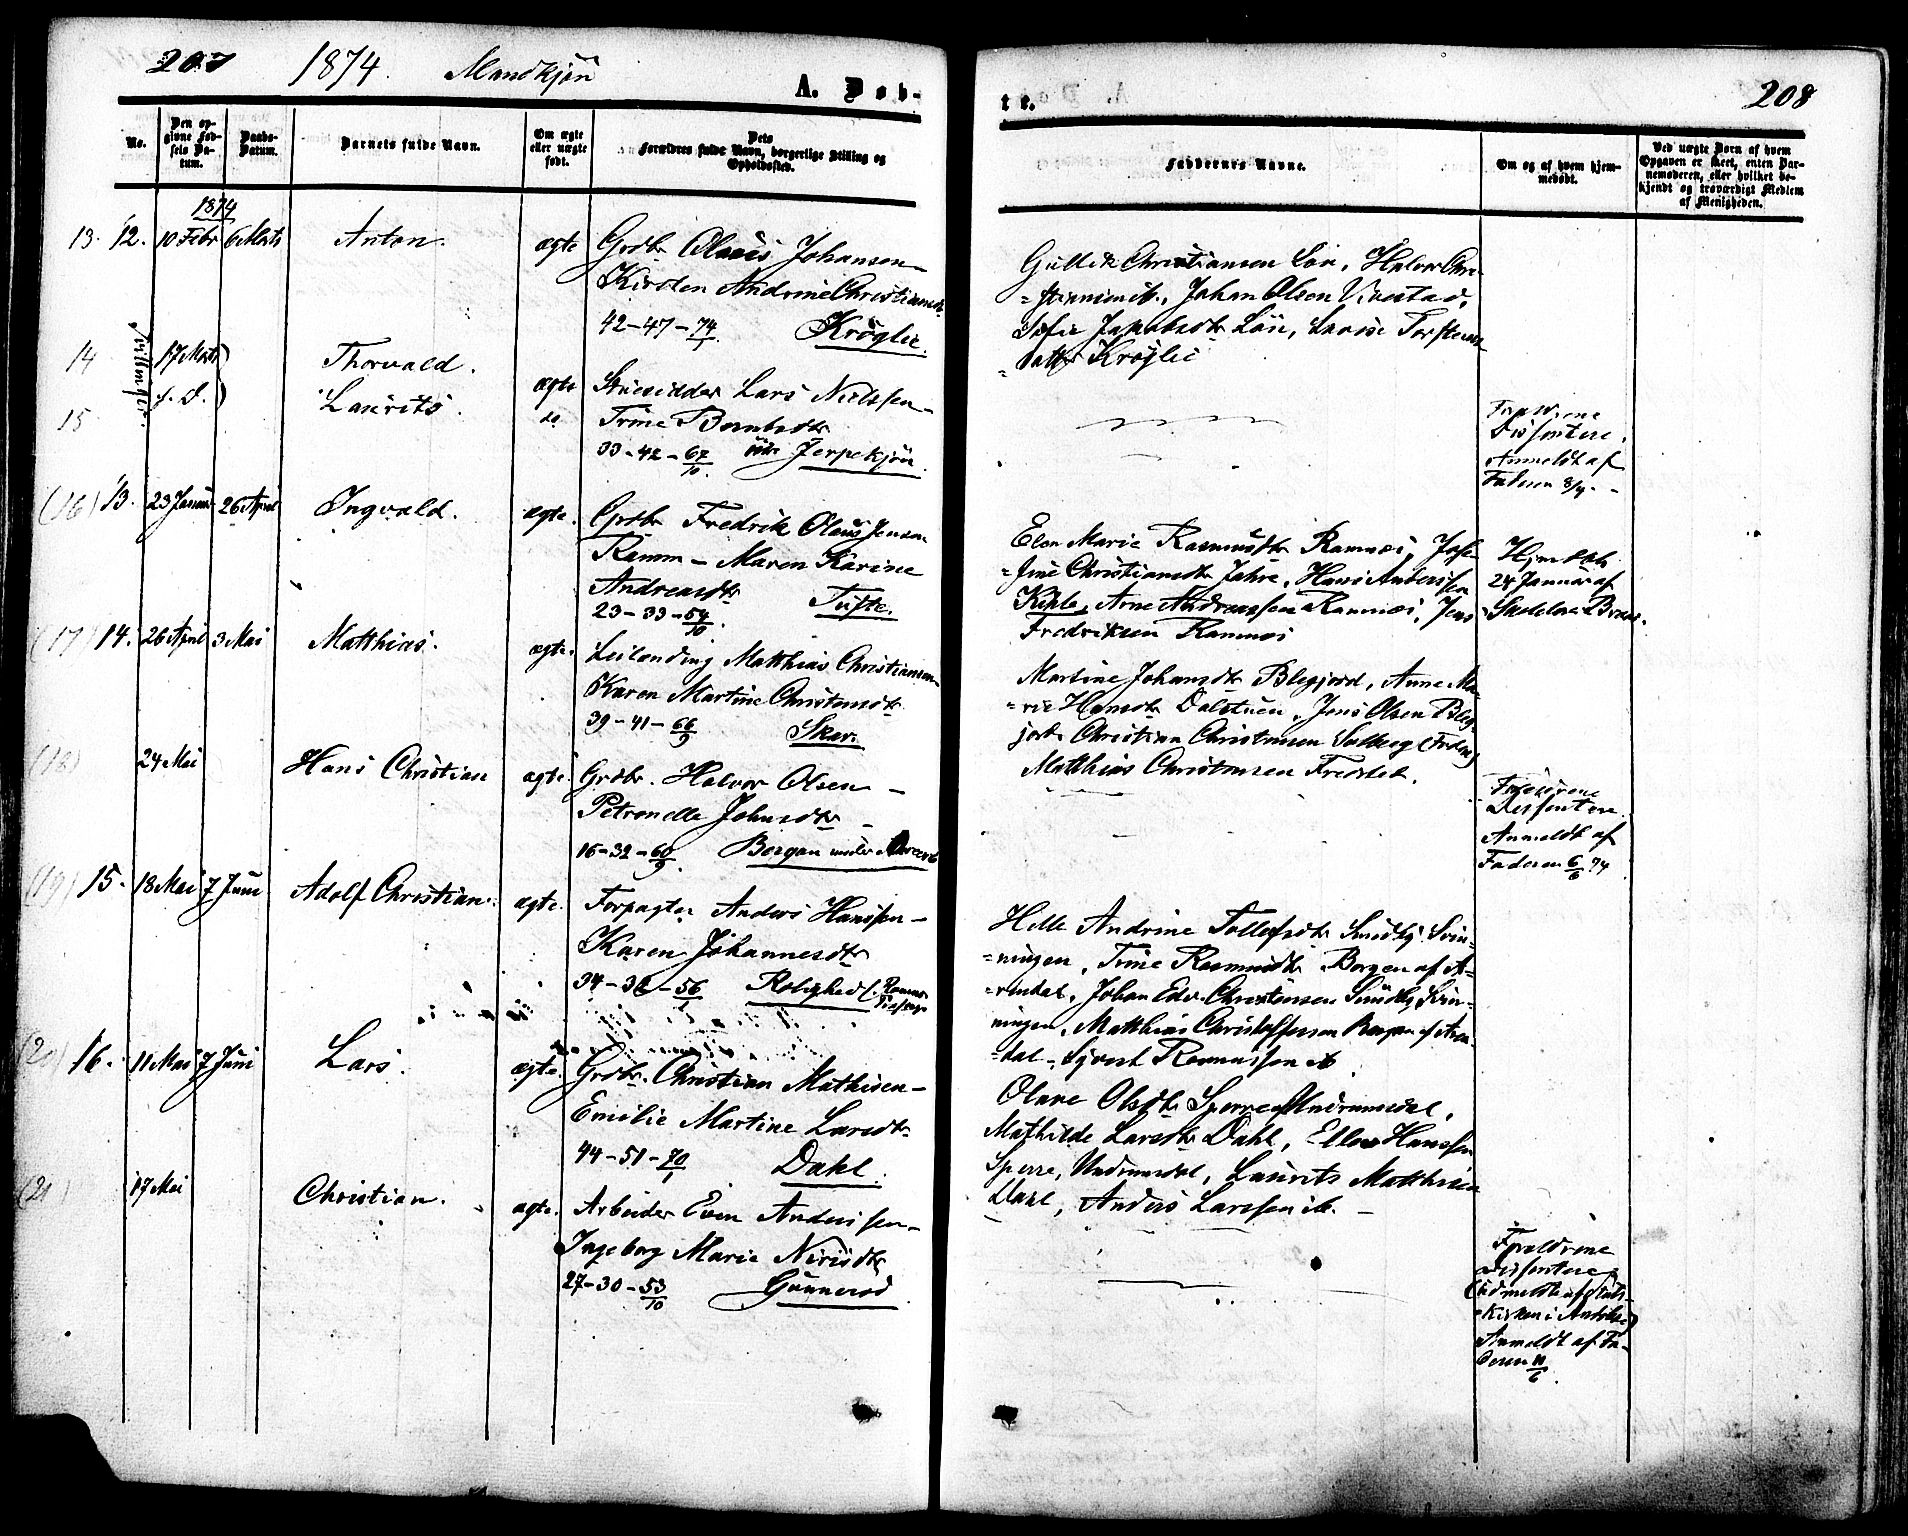 207 1874. Mandkjøn A. Døb-
No.
Den op-
givne Fød-
sels Da-
tum.
Daabs-
Datum.
Barnets fulde Navn.
Om ægte
eller uægte
født.
Dets
Forældres fulde Navn, borgerlige Stilling og
Opholdssted.
1874
13. 12. 10 Febr 6 Marts Anton. ægte Grdbr. Olaus Johansen -
Kirsten Andrine Christiansdtr
42-47-74/1. Krøglie.
Tvillinger.
14 17 Marts Thorvald.
15 s. D. Laurits. ægte Stuesidder Lars Nielsen -
do Trine Berntsdtr
33-42-67/10. Jerpekjøn
(16) 13. 23 Januar 26 April Ingvald. ægte. Grdbr Fredrik Olaus Jensen
Ramm - Maren Karine
Andreasdtr Tufte.
23-33-54/10.
(17) 14. 26 April 3 Mai Matthias. ægte. Leilending Matthias Christiansen -
Karen Martine Christensdtr
39-41-66/9 Skar.
(18) 24 Mai Hans Christian ægte. Grdbr. Halvor Olsen -
Petronelle Johnsdtr -
16-32-60/9. Bergan under
(19) 15. 18 Mai 7 Juni Adolf Christian. ægte. Forpagter Anders Hanssen -
Karen Johannesdtr
Rolighed
(20) 16. 11 Mai 7 Juni Lars. ægte. Grdbr. Christian Mathisen -
Emilie Martine Larsdtr
44-51-70/1 Dahl.
(21) 17 Mai Christian. ægte. Arbeider Even Anderssen -
Ingeborg Marie
27-30-53/10 Gunnerød
te. 208
Faddernes Navne.
Om og af hvem hjem-
medøbt.
Ved uægte Børn af hvem
Opgaven er skeet, enten Bar-
nemoderen, eller hvilket be-
kjendt og troværdigt Medlem
af Menigheden.
Gullik Christiansen Løii, Halvor Chri-
=stiansen ib., Johan Olsen
Sofie Jakobsdtr Løii, Lovise Torstens-
=datter Krøglie
Forældrene
Dissentere.
Anmeldt af
Faderen 8/4.
Elen Marie Rasmusdtr Ramnæs, Jose-
=fine Christiansdtr Jahre, Hans Anderssen
Kihle, Arne Andreassen Ramnæs, Jens
Fredriksen Ramnæs
Hjmdøbt
24 Januar af
Martine Johansdtr Blegjord, Anne Ma-
=rie Hansdtr Dalstuen, Jens Olsen Bleg-
jord. Christian Christensen Solberg (Faderen)
Matthias Christensen Fredstel.
Forældrene
Dissentere.
Anmeldt af
Faderen 6/6 74
Helle Andrine Tollefsdtr Smidhg Svin-
=ningen, Trine Rasmusdtr Borgen af A-
=rendal, Johan Edv. Christensen Smidhg Svin-
ningen, Matthias Christofferssen Borgen af Aren-
=dal, Sjvert Rasmussen ib
Olave Olsdtr Sperre Undrumsdal,
Mathilde Larsdtr Dahl, Ellev Hanssen
Sperre, Undrumsdal, Laurits Matthisen
Dahl, Anders Larssen ib. -
Forældrene
Dissentere
(udmeldt af Stats-
=kirken i
Anmeldt af Fa-
deren 11/6.